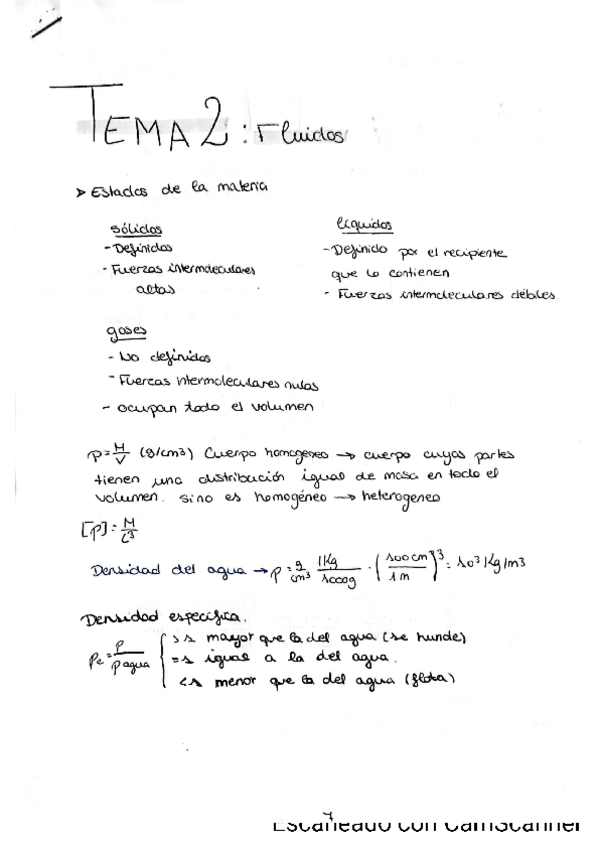 TEMA 2: Fluidos
> Estados de la materia
sólidos
- Definidos
- Fuerzas intermoleculares
altas
líquidos
- Definido por el recipiente
que lo contienen
- Fuerzas intermoleculares débiles
gases
- No definidos
- Fuerzas intermoleculares nulas
- ocupan todo el volumen
ρ = M/V (g/cm³) Cuerpo homogeneo → cuerpo cuyas partes
tienen una distribución igual de masa en todo el
volumen. si no es homogéneo → heterogeneo
[ρ] = M/L³
Densidad del agua → ρ = g/cm³ 1Kg/1000g · (100cm/1m)³ = 10³ Kg/m3
Densidad específica.
ρe = ρ/ρagua { >1 mayor que la del agua (se hunde)
=1 igual a la del agua.
<1 menor que la del agua (flota)
Escaneado con CamScanner